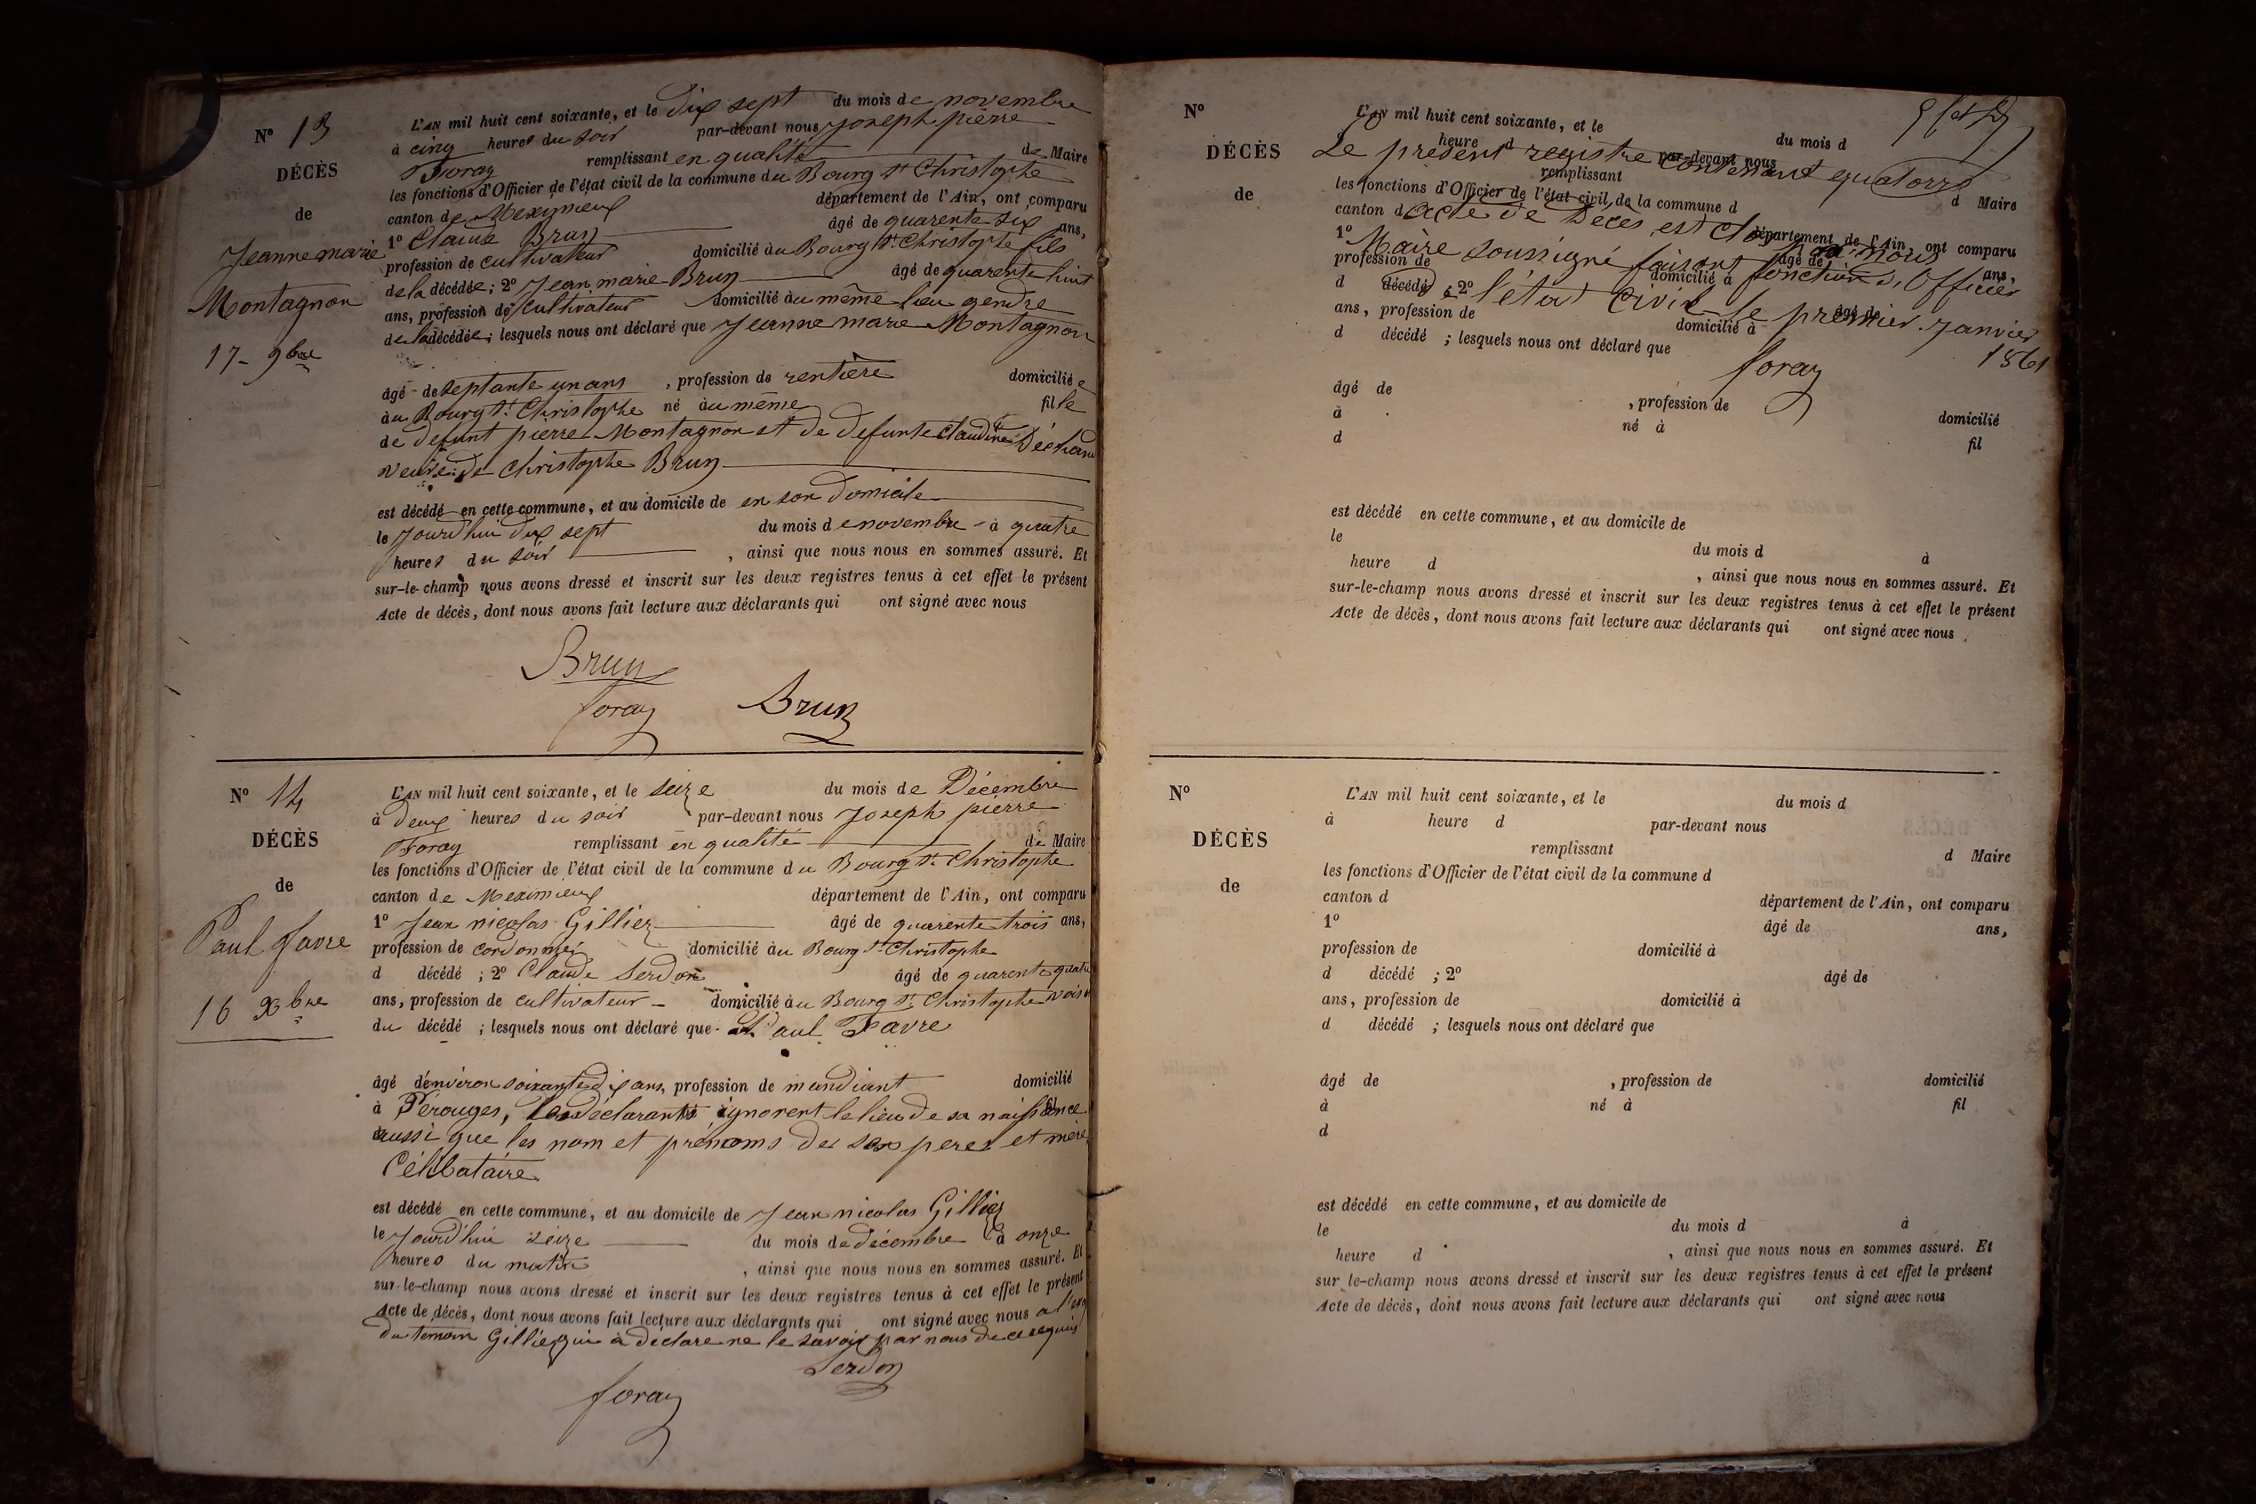 N° 13
DÉCÈS
de
Jeanne marie
Montagnon
17 - 9bre
L'AN mil huit cent soixante, et le dix sept du mois de novembre
à cinq heures du soir par-devant nous Joseph pierre
Foray remplissant en qualité de Maire
les fonctions d'Officier de l'état civil de la commune du Bourg St Christophe
canton de Meximieux département de l'Ain, ont comparu
1° Claude Brun âgé de quarente six ans,
profession de cultivateur domicilié au Bourg St Christophe fils
de la décédée ; 2° Jean marie Brun âgé de quarente huit
ans, profession de cultivateur domicilié au même lieu gendre
de la décédée ; lesquels nous ont déclaré que Jeanne marie Montagnon
âgé de septante un ans , profession de rentière domicilié e
au Bourg St Christophe né au même fille
de defunt pierre Montagnon et de defunte Claudine
veuve de Christophe Brun
est décédé en cette commune, et au domicile de en son domicile
le Jourd'hui dix sept du mois de novembre - à quatre
heures du soir , ainsi que nous nous en sommes assuré. Et
sur-le-champ nous avons dressé et inscrit sur les deux registres tenus à cet effet le présent
Acte de décès, dont nous avons fait lecture aux déclarants qui ont signé avec nous
Brun
foray Brun
N° 14
DÉCÈS
de
Paul favre
16 Xbre
L'AN mil huit cent soixante, et le seize du mois de Décembre
à deux heures du soir par-devant nous Joseph pierre
Foray remplissant en qualité de Maire
les fonctions d'Officier de l'état civil de la commune du Bourg St Christophe
canton de Meximieux département de l'Ain, ont comparu
1° Jean nicolas Gillier âgé de quarente trois ans,
profession de cordonnier domicilié au Bourg St Christophe
d décédé ; 2° Claude Serdon âgé de quarente quatre
ans, profession de cultivateur - domicilié au Bourg St Christophe voisin
du décédé ; lesquels nous ont déclaré que Paul Favre
âgé d'environ soixante dix ans, profession de mendiant domicilié
à Pérouges, Les déclarants ignorent le lieu de sa naissance
aussi que les nom et prénoms des ses peres et mère
Célibataire
est décédé en cette commune, et au domicile de Jean nicolas Gillier
le Jourd'hui seize du mois de décembre à onze
heures du matin , ainsi que nous nous en sommes assuré. Et
sur-le-champ nous avons dressé et inscrit sur les deux registres tenus à cet effet le présent
Acte de décès, dont nous avons fait lecture aux déclarants qui ont signé avec nous
du temoin Gillier qui à déclare ne le savoir par nous de ce requis
Serdon
foray
N°
DÉCÈS
de
L'AN mil huit cent soixante, et le du mois d
heure d par-devant nous
Le présent registre contenant quatorze
remplissant d Maire
les fonctions d'Officier de l'état civil de la commune d
canton d département de l'Ain, ont comparu
acte de Décès est clos par nous
1° âgé de ans,
Maire soussigné faisant fonction d'Officier
profession de domicilié à
d décédé ; 2° âgé de
de l'état civil le premier Janvier
1861
ans, profession de domicilié à
d décédé ; lesquels nous ont déclaré que
foray
âgé de , profession de domicilié
à né à fil
d
est décédé en cette commune, et au domicile de
le du mois d à
heure d , ainsi que nous nous en sommes assuré. Et
sur-le-champ nous avons dressé et inscrit sur les deux registres tenus à cet effet le présent
Acte de décès, dont nous avons fait lecture aux déclarants qui ont signé avec nous
N°
DÉCÈS
de
L'AN mil huit cent soixante, et le du mois d
à heure d par-devant nous
remplissant d Maire
les fonctions d'Officier de l'état civil de la commune d
canton d département de l'Ain, ont comparu
1° âgé de ans,
profession de domicilié à
d décédé ; 2° âgé de
ans, profession de domicilié à
d décédé ; lesquels nous ont déclaré que
âgé de , profession de domicilié
à né à fil
d
est décédé en cette commune, et au domicile de
le du mois d à
heure d , ainsi que nous nous en sommes assuré. Et
sur le-champ nous avons dressé et inscrit sur les deux registres tenus à cet effet le présent
Acte de décès, dont nous avons fait lecture aux déclarants qui ont signé avec nous